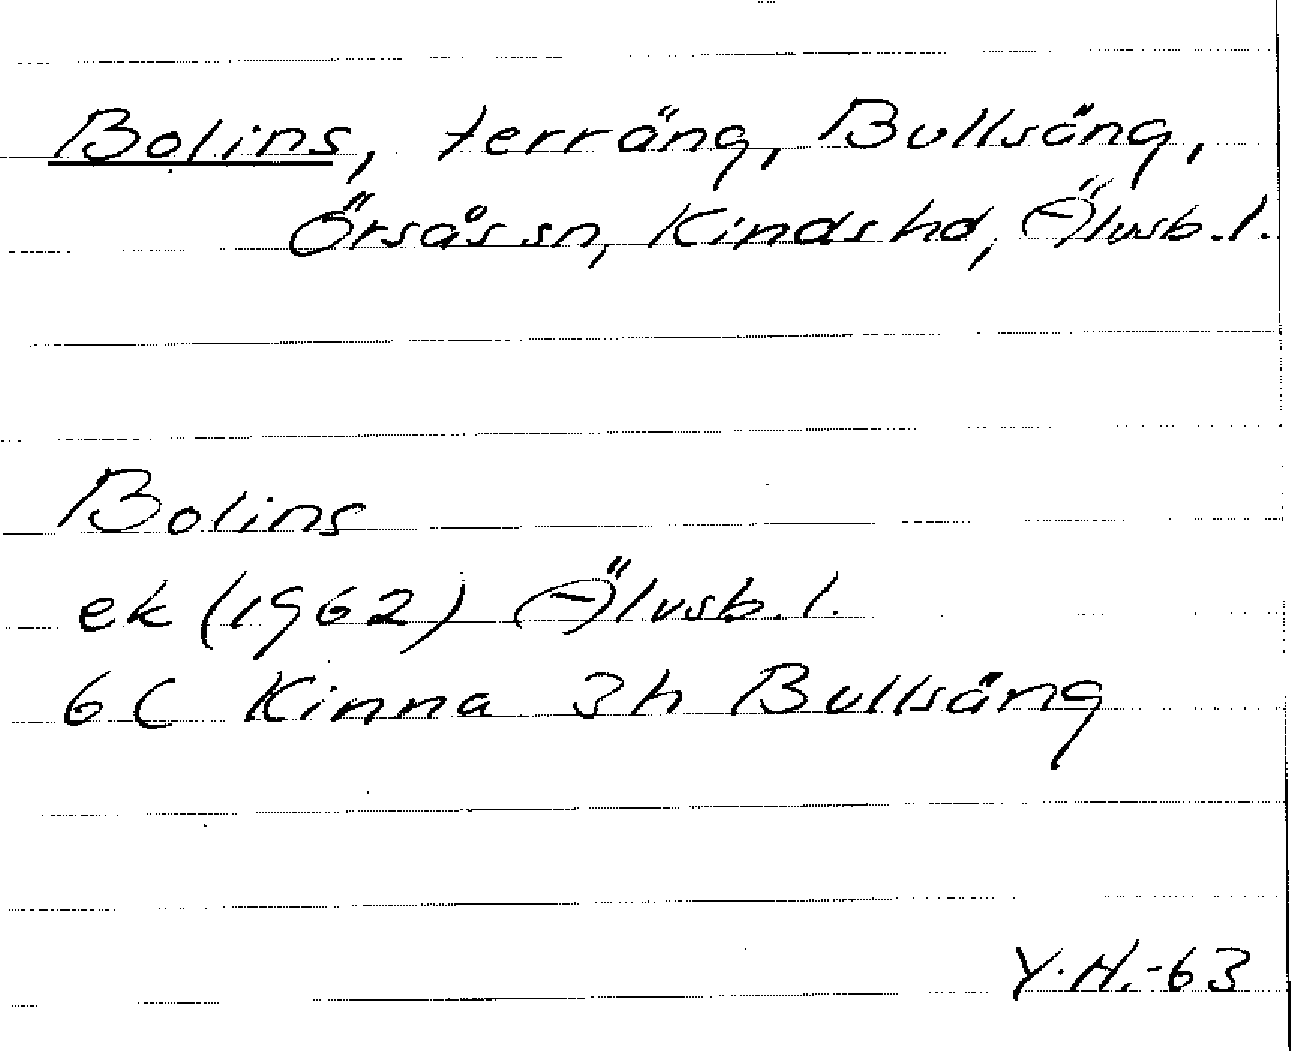 Bolins, terräng, Bullsäng,
Örsås sn, Kinds hd, Älvsb. l.
Bolins
ek (1962) Älvsb. l.
6C Kinna 3h Bullsäng
Y.H.-63